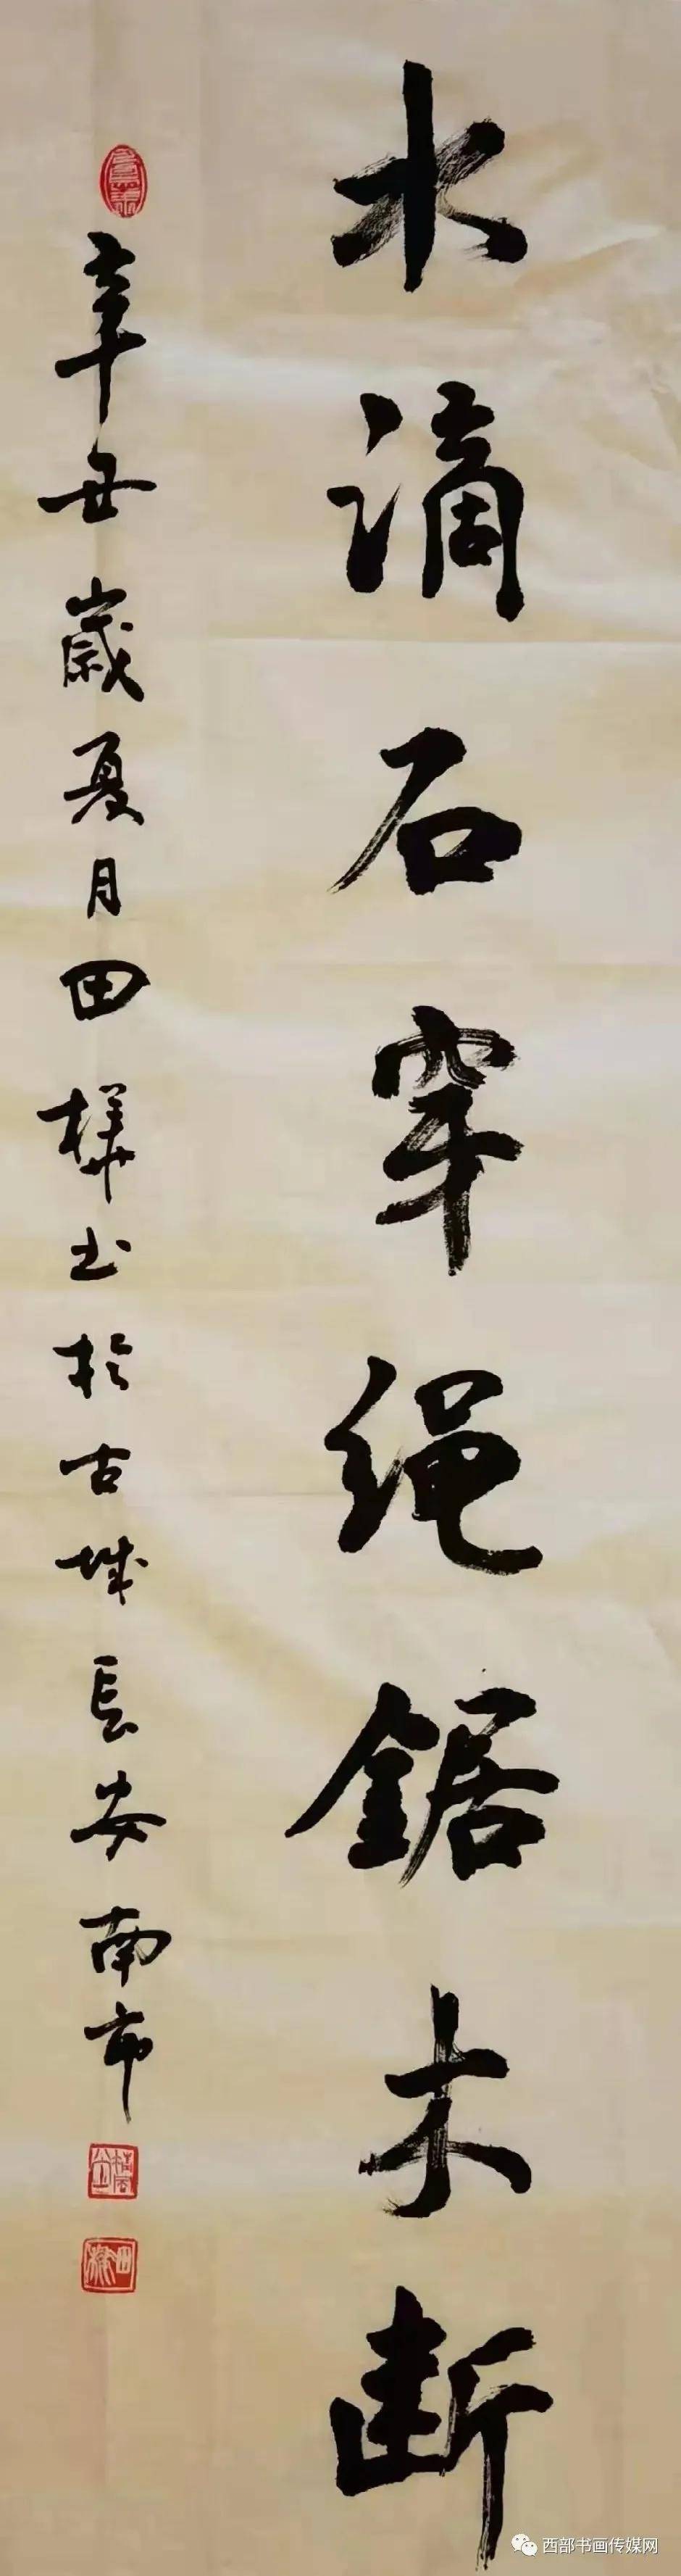 水滴石穿绳鋸木断
辛丑歲夏月田樺书於古城長安南市
西部书画传媒网